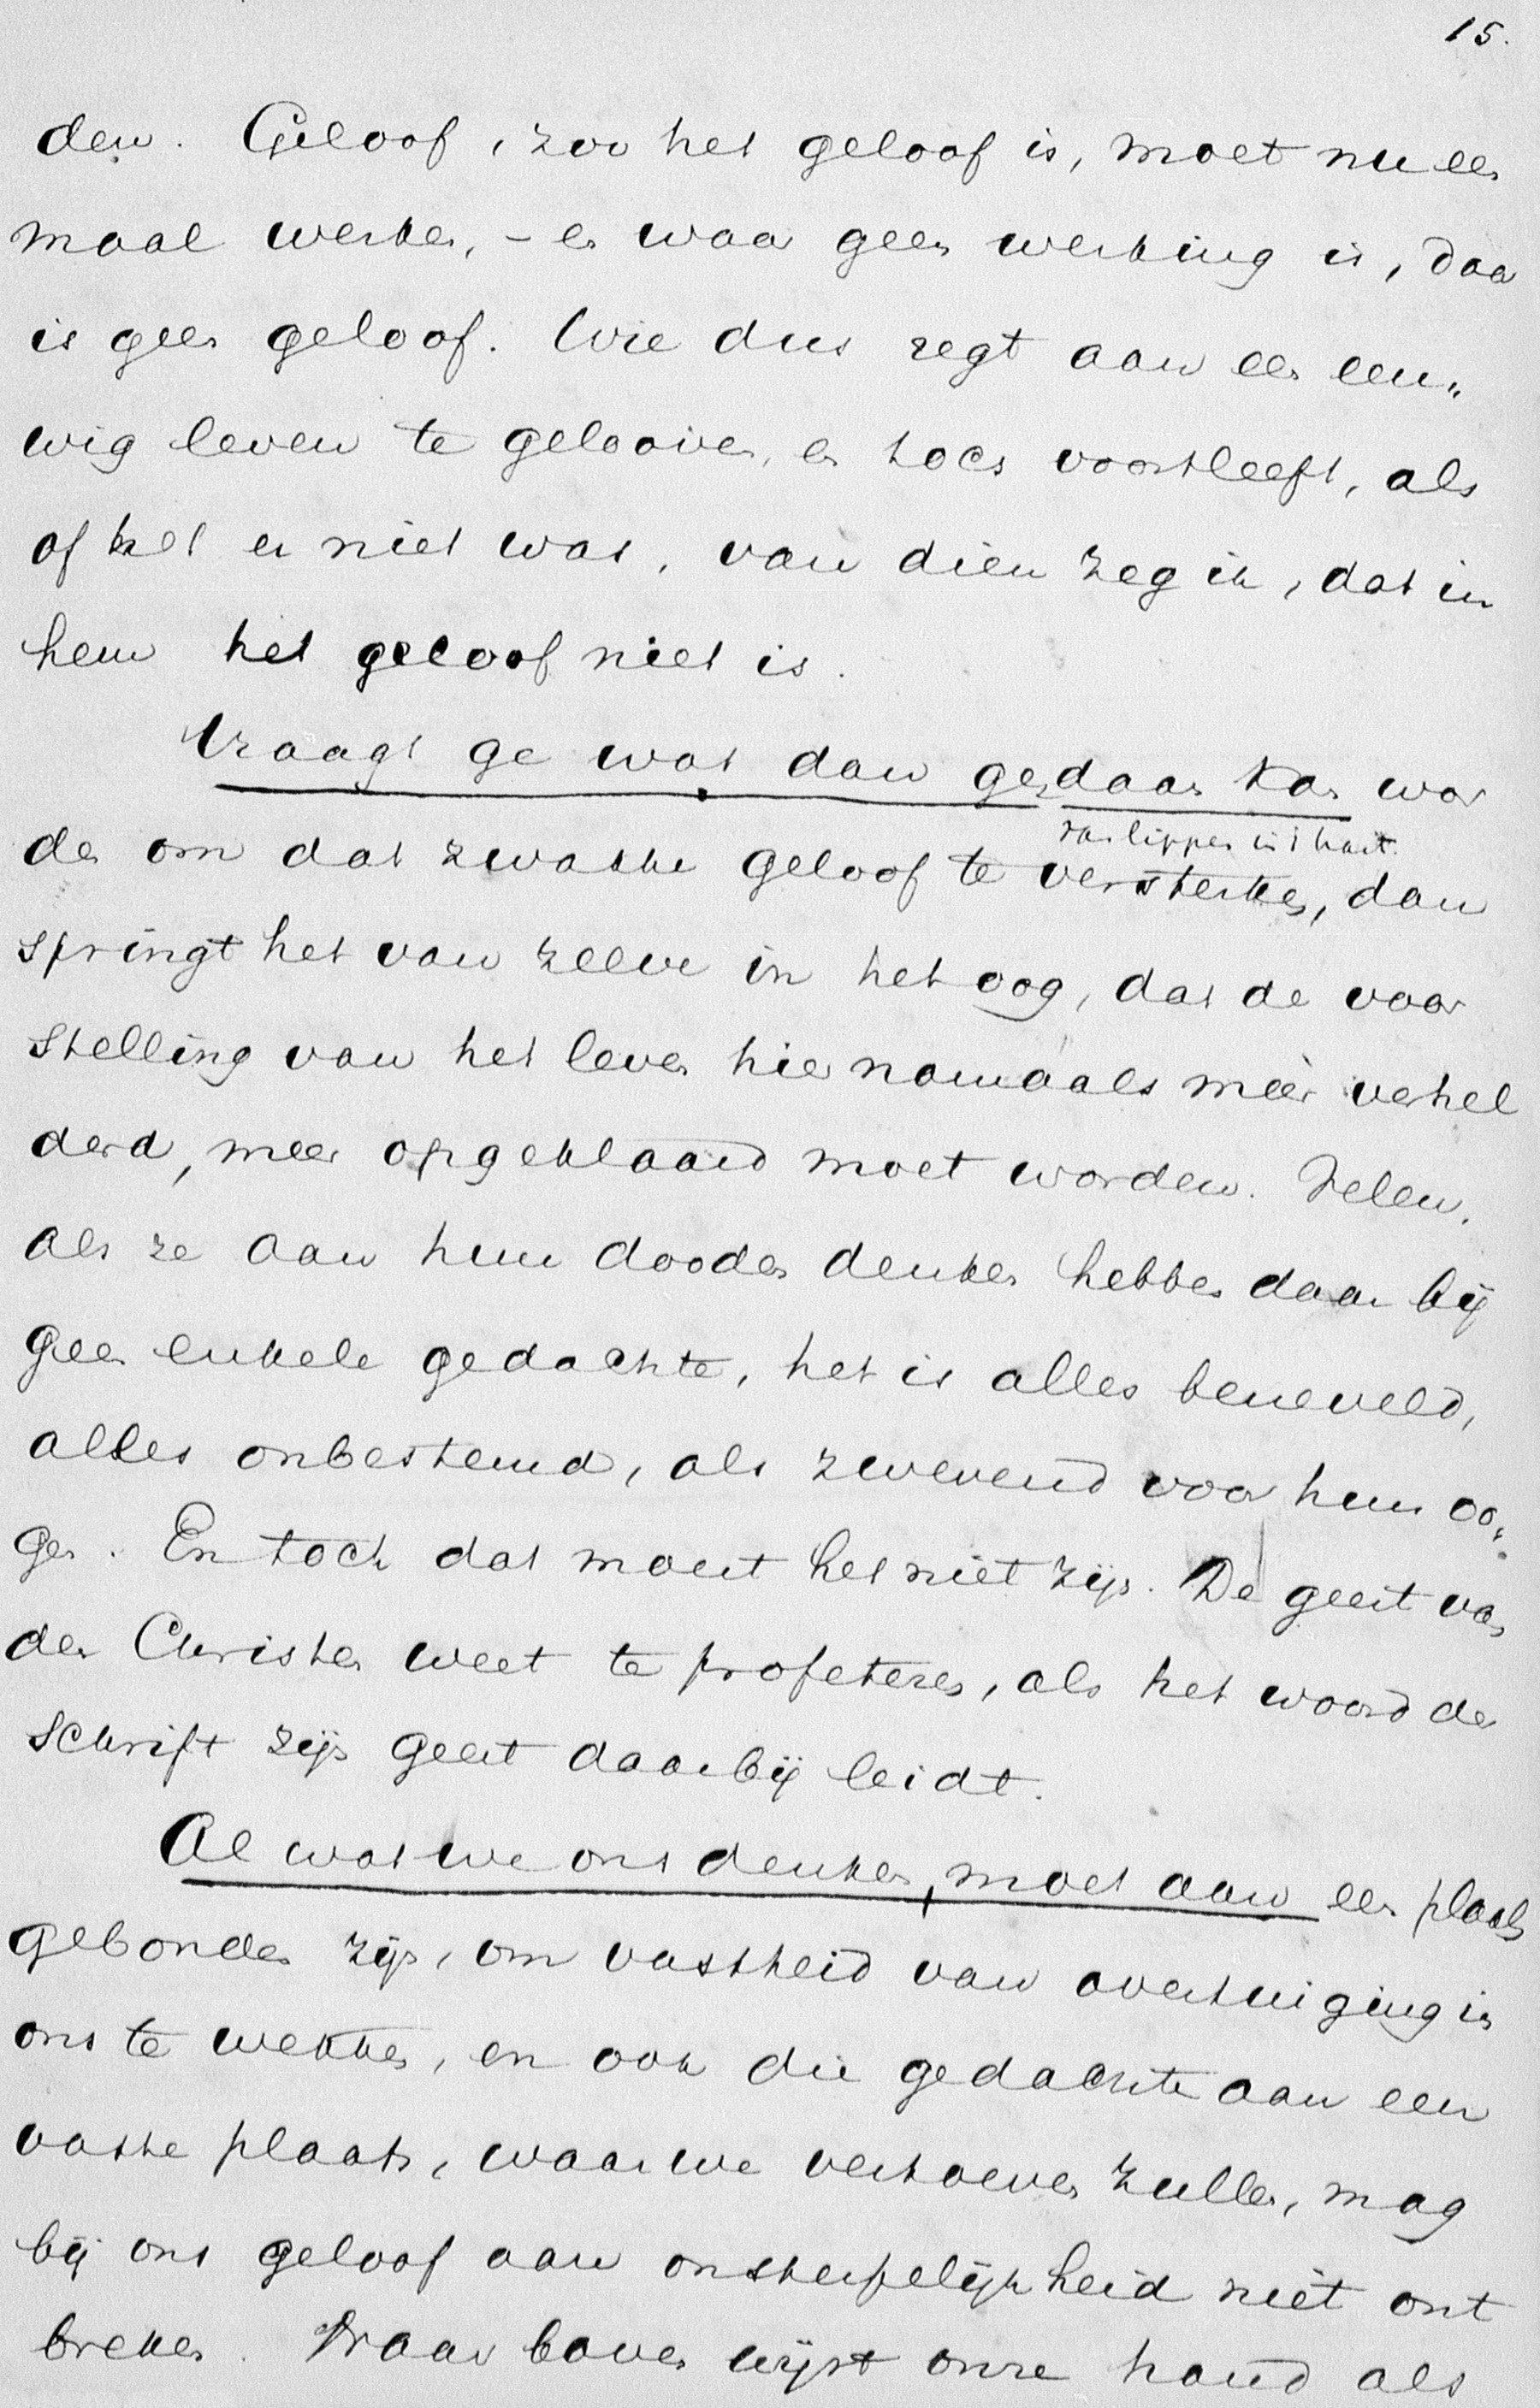 15.
den. Geloof, zoo het geloof is, moet nu een
maal werken, – en waar geen werking is, daar
is geen geloof. Wie dus zegt aan een eeu„
wig leven te gelooven, en toch voortleeft, als
of het er niet was, van dien zeg ik, dat in
hem het geloof niet is.
Vraagt ge wat dan gedaan kan wor
van lippen in 't hart.
den om dat zwakke geloof te versterken, dan
springt het van zelve in het oog, dat de voor
stelling van het leven hiernamaals méér verhel
derd, meer opgeklaard moet worden. Velen,
als ze aan hun dooden denken hebben daar bij
geen enkele gedachte, het is alles beneveld,
alles onbestemd, als zwevend voor hun oo„
gen. En toch dat moest het niet zijn. De geest van
den Christen weet te profeteren, als het woord der
Schrift zijn geest daarbij leidt.
Al wat we ons denken, moet aan een plaats
gebonden zijn, om vastheid van overtuiging in
ons te wekken, en ook die gedachte aan een
vaste plaats, waar we vertoeven zullen, mag
bij ons geloof aan onsterfelijkheid niet ont
breken. Naar boven wijst onze hand als